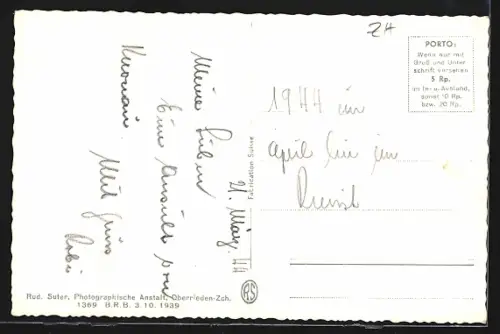 ZH
PORTO:
Wenn nur mit
Gruß und Unter
schrift versehen
5 Rp.
im In- u. Ausland,
sonst 10 Rp.
bzw. 20 Rp.
21. März 44
Meine Lieben
Eine Ansicht von
Mit Gruss
1944 im
April bin im
Dienst
Fabrication Suisse
RS
Rud. Suter, Photographische Anstalt, Oberrieden-Zch.
1369 B.R.B. 3.10.1939